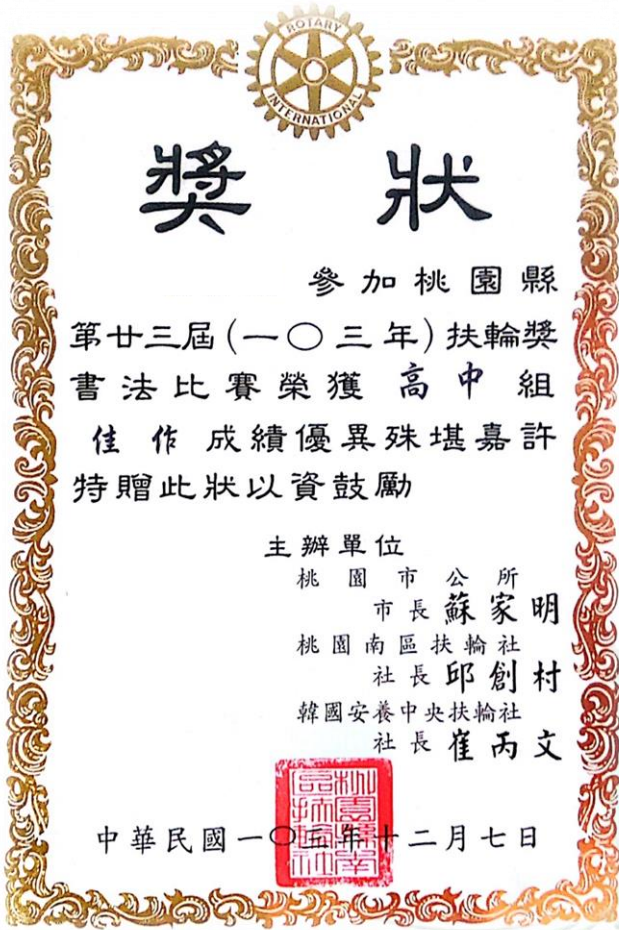 ROTARY
INTERNATIONAL
獎狀
參加桃園縣
第廿三屆(一〇三年)扶輪獎
書法比賽榮獲 高中 組
佳作 成績優異殊堪嘉許
特贈此狀以資鼓勵
主辦單位
桃園市公所
市長 蘇家明
桃園南區扶輪社
社長 邱創村
韓國安養中央扶輪社
社長 崔丙文
桃園縣南區扶輪社
中華民國一〇三年十二月七日